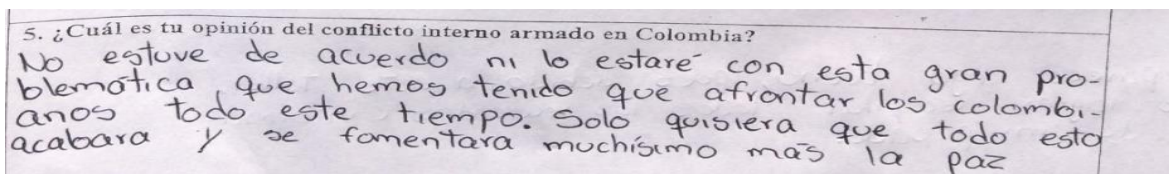 5. ¿Cuál es tu opinión del conflicto interno armado en Colombia?
No estuve de acuerdo ni lo estaré con esta gran pro-
blemática, que hemos tenido que afrontar los colombi-
anos todo este tiempo. Solo quisiera que todo esto
acabara y se fomentara muchísimo más la paz